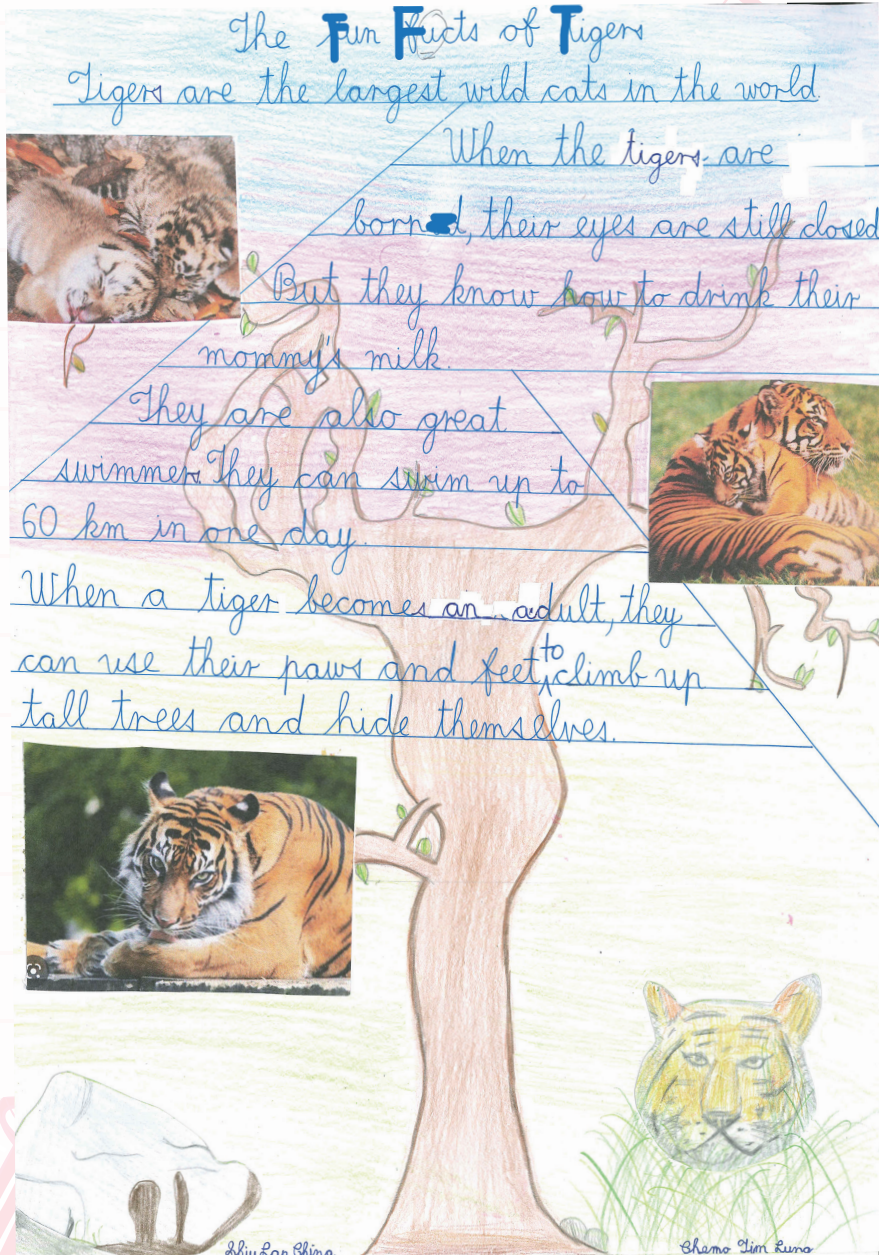 The Fun Facts of Tigers
Tigers are the largest wild cats in the world.
When the tigers are
born, their eyes are still closed
But they know how to drink their
mommy's milk.
They are also great
swimmers. They can swim up to
60 km in one day.
When a tiger becomes an adult, they
can use their paws and feet, to climb up
tall trees and hide themselves.